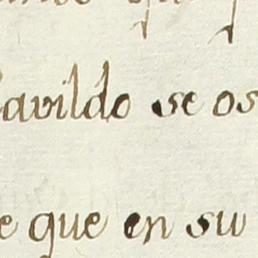 Cavildo se os
e que en su